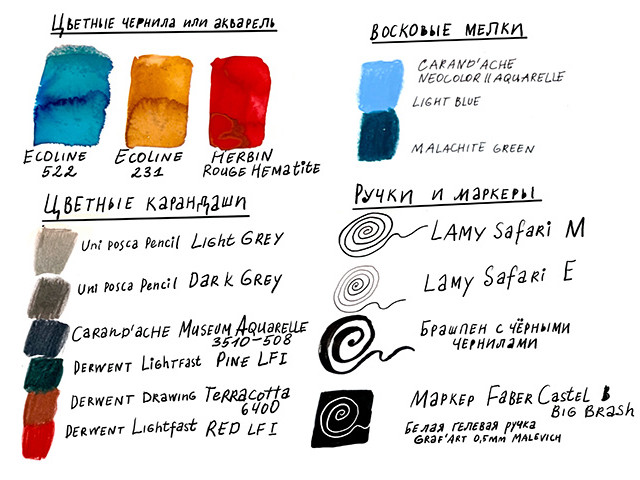 Цветные чернила или акварель
Ecoline
522
Ecoline
231
Herbin
Rouge Hematite
Восковые мелки
Carand'ache
Neocolor II Aquarelle
Light Blue
Malachite Green
Цветные карандаши
Uni Posca Pencil Light Grey
Uni Posca Pencil Dark Grey
Carand'ache Museum Aquarelle
3510-508
Derwent Lightfast Pine LFI
Derwent Drawing Terracotta
6400
Derwent Lightfast Red LFI
Ручки и маркеры
Lamy Safari M
Lamy Safari E
Брашпен с чёрными
чернилами
Маркер Faber Castel B
Big Brash
Белая гелевая ручка
Graf'Art 0,5мм Malevich